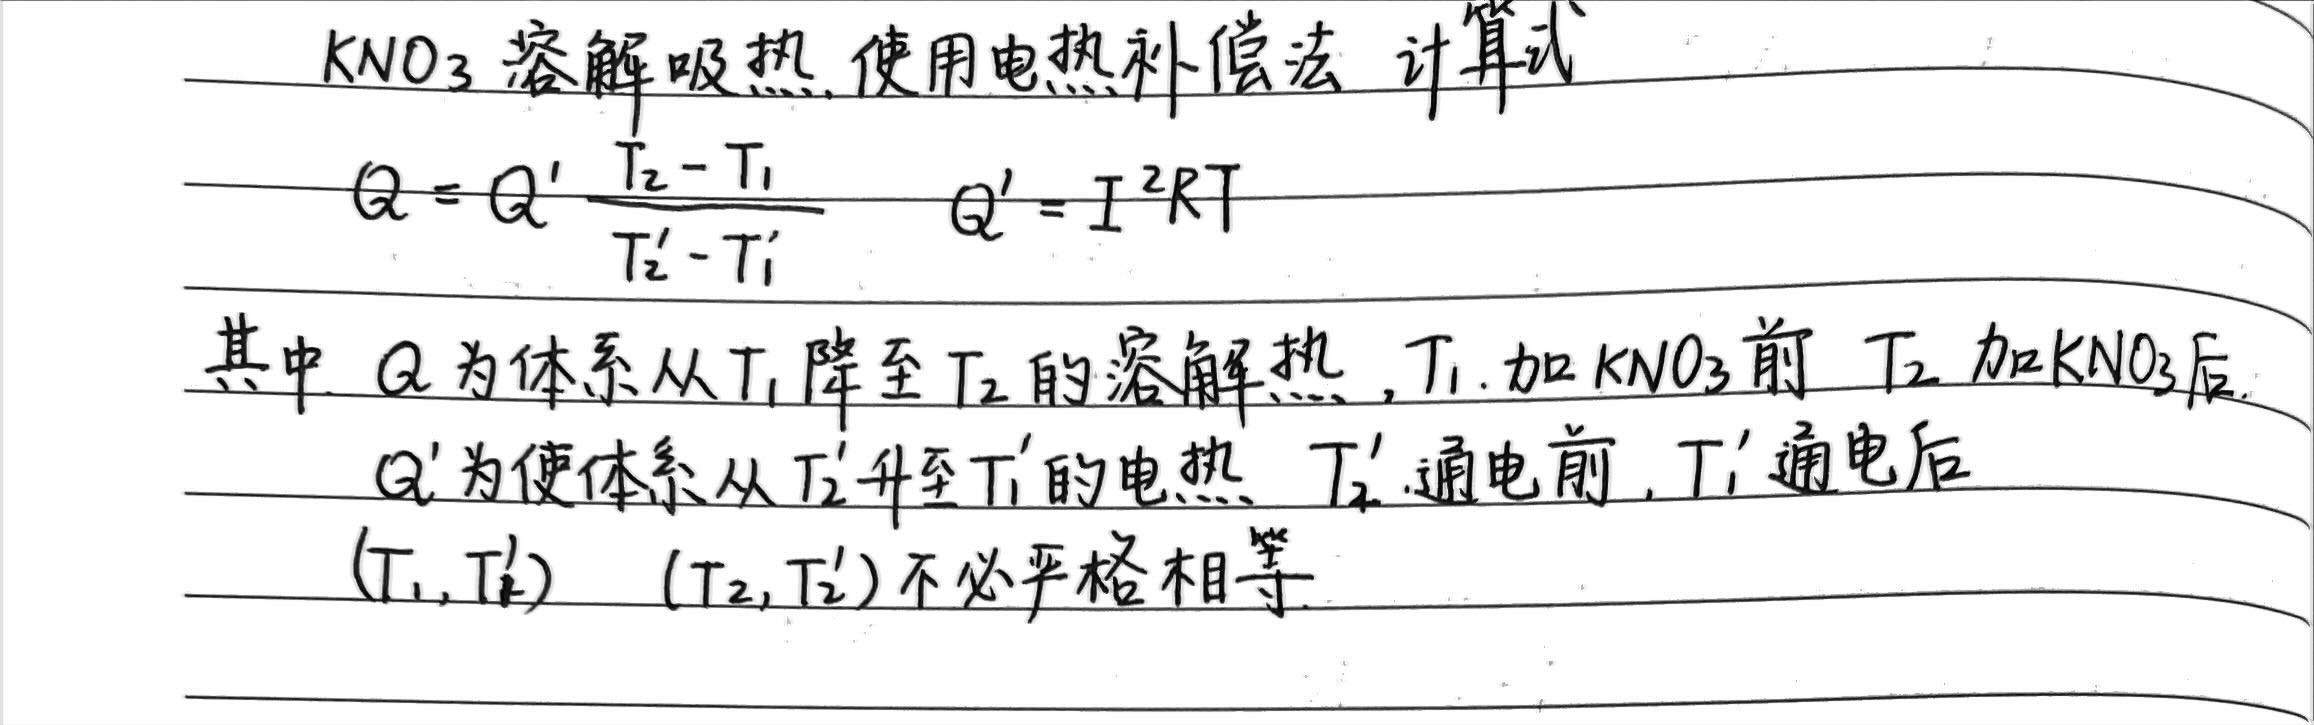 KNO₃溶解吸热,使用电热补偿法 计算式
Q = Q' (T₂ - T₁)/(T₂' - T₁') Q' = I²RT
其中 Q为体系从T₁降至T₂的溶解热,T₁.加KNO₃前 T₂ 加KNO₃后.
Q'为使体系从T₂'升至T₁'的电热 T₂'.通电前,T₁'通电后
(T₁,T₁') (T₂,T₂')不必严格相等.